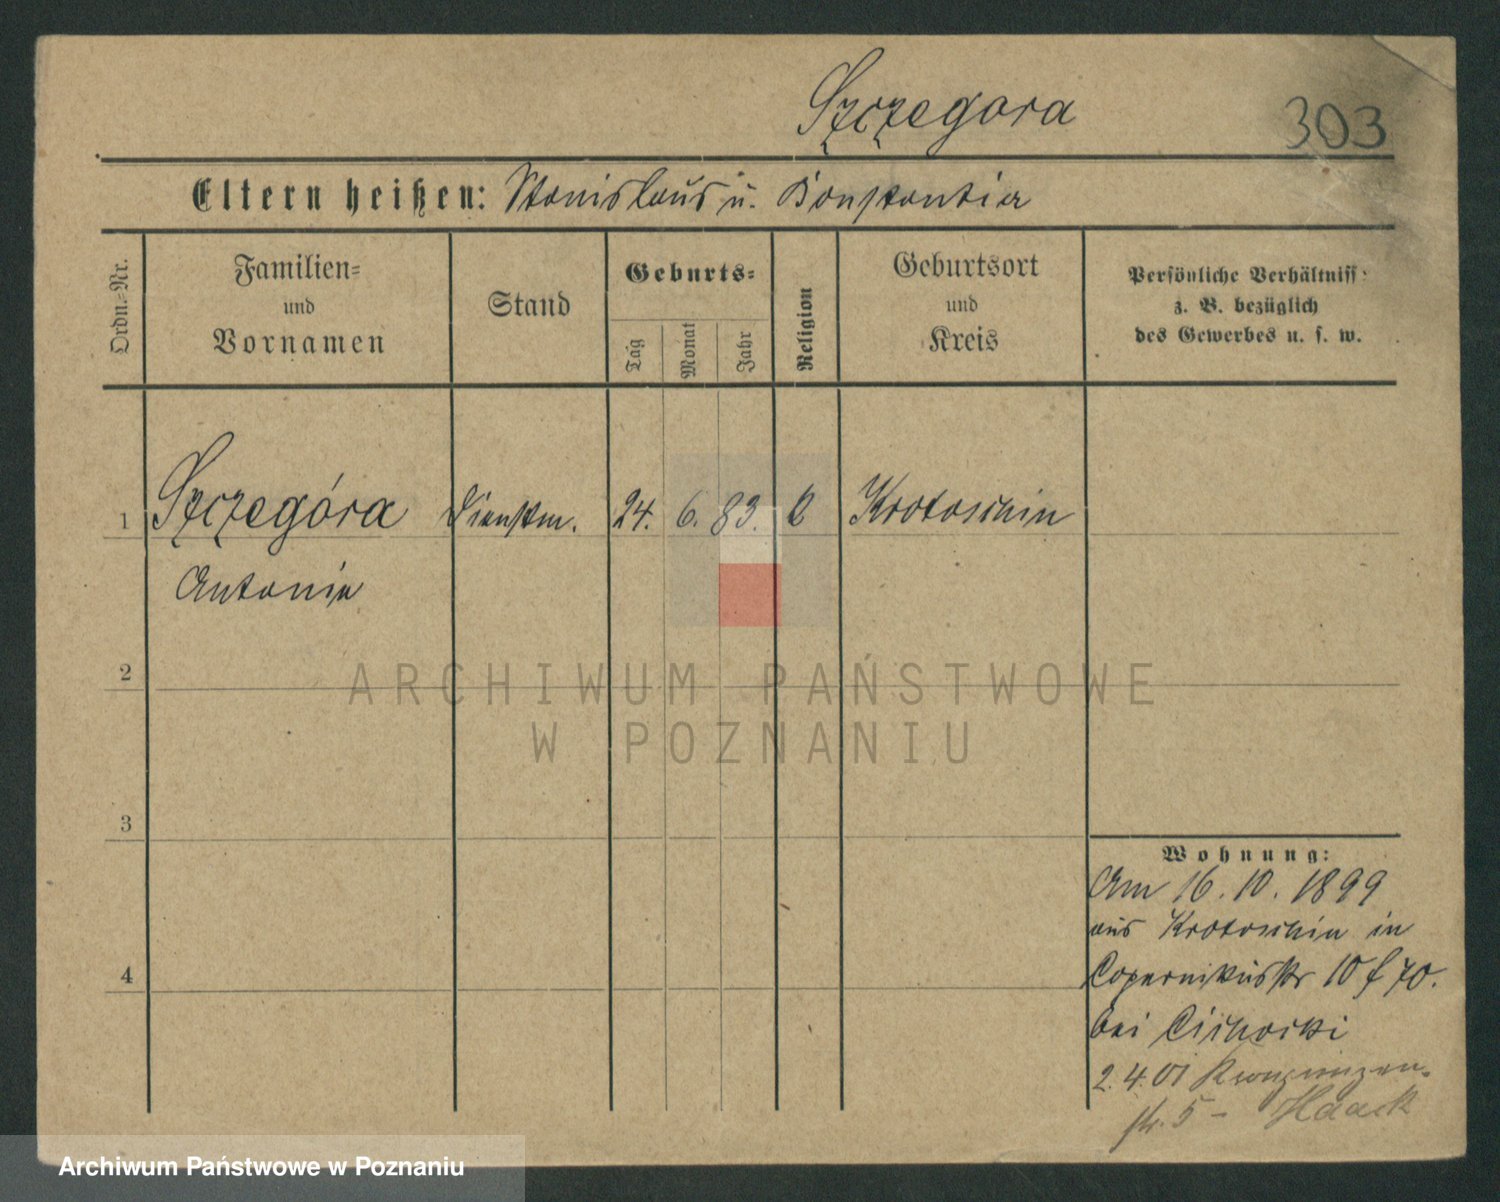 Szczegora 303
Eltern heißen: Stanislaus u. Konstantia
Ordn.-Nr.
Familien-
und
Vornamen
Stand
Geburts-
Tag
Monat
Jahr
Religion
Geburtsort
und
Kreis
Persönliche Verhältniss
z. B. bezüglich
des Gewerbes u. s. w.
1 Szczegóra Dienstm. 24. 6. 83. k Krotoschin
Antonia
2
3
4
Wohnung:
Am 16. 10. 1899
aus Krotoschin in
Copernikusstr 10 f 70.
bei Cichocki
2.4.01 Kronprinzen-
str. 5 - Haack
ARCHIWUM PAŃSTWOWE
W POZNANIU
Archiwum Państwowe w Poznaniu